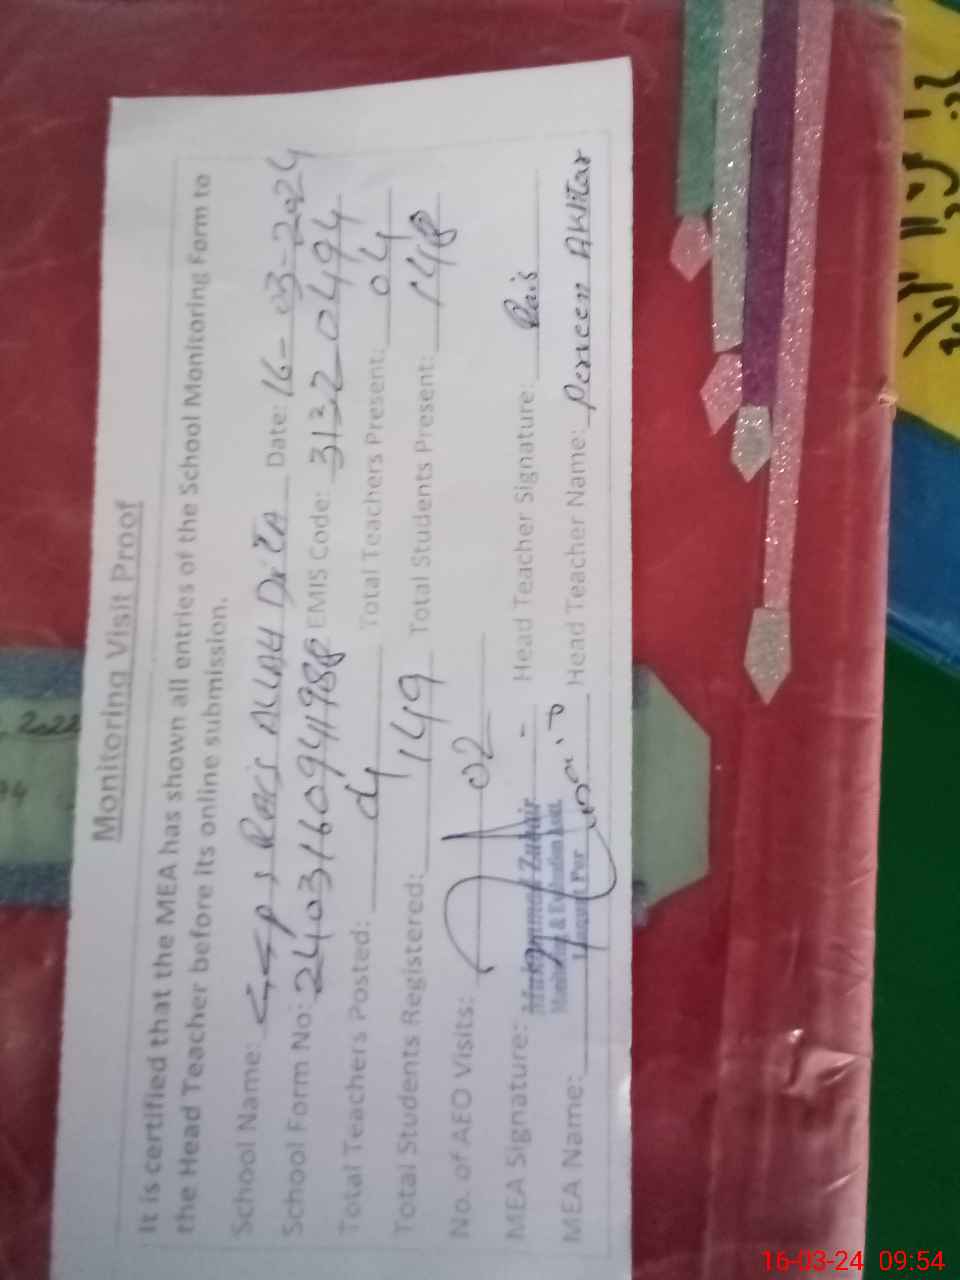 Monitoring Visit Proof
It is certified that the MEA has shown all entries of the School Monitoring Form to
the Head Teacher before its online submission.
School Name: GGPS RAIS ALLAH DITA Date: 16-03-2024
School Form No: EMIS Code: 31320494
Total Teachers Posted: 04 Total Teachers Present: 04
Total Students Registered: 149 Total Students Present:
No. of AEO Visits: 02
MEA Signature: Head Teacher Signature: Rais
MEA Name: Head Teacher Name: Perveen Akhtar
Muhammad Zubair
2022
16-03-24 09:54